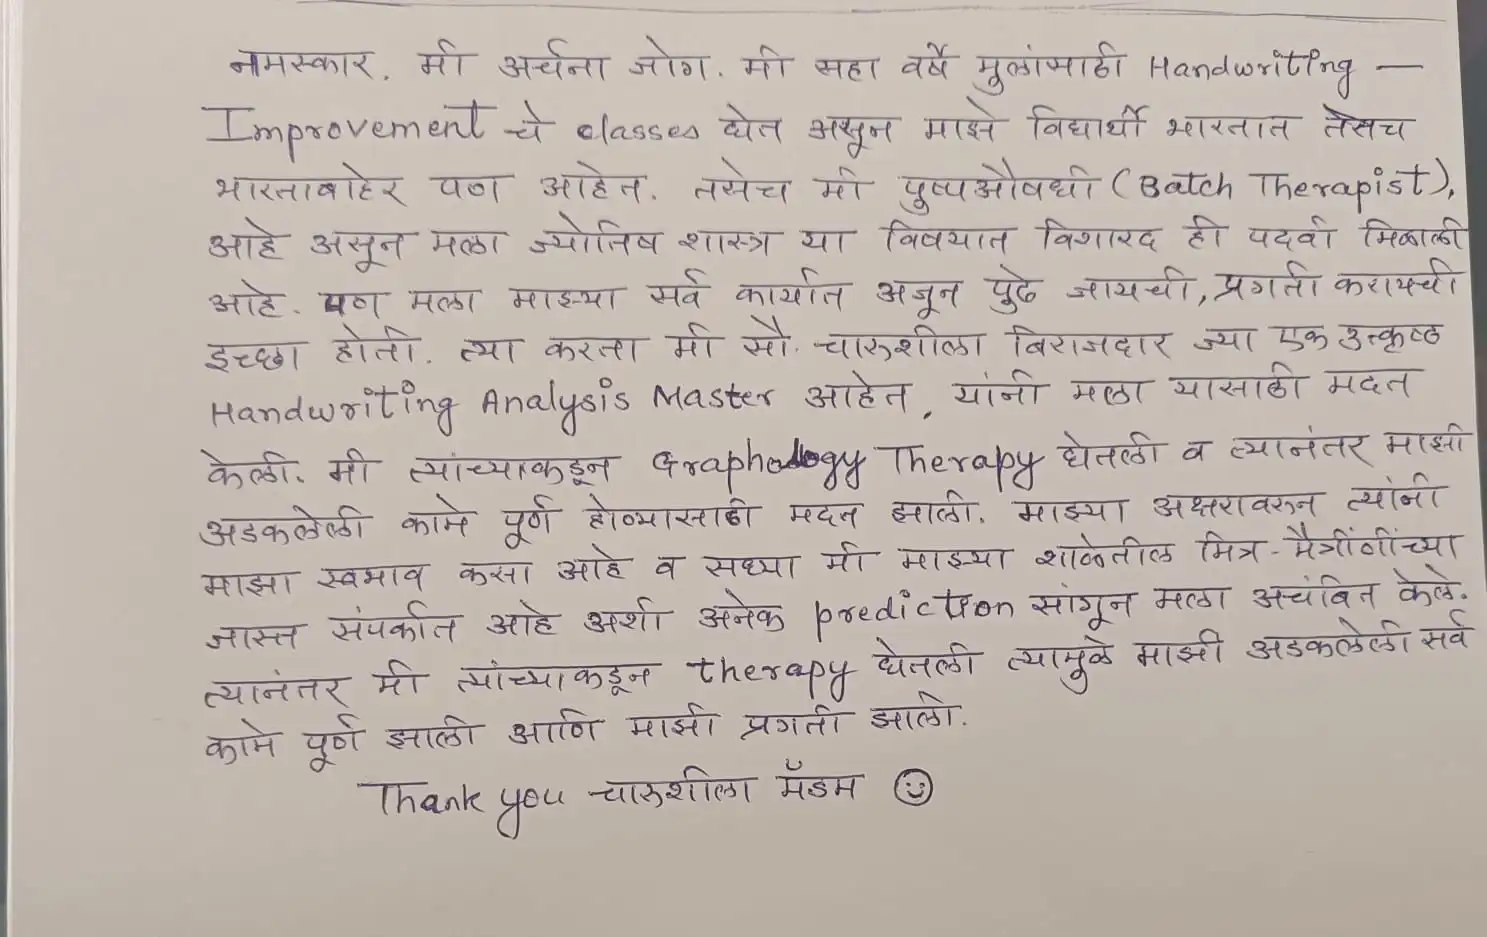 नमस्कार. मी अर्चना जोग. मी सहा वर्षे मुलांसाठी Handwriting —
Improvement चे classes घेत असून माझे विद्यार्थी भारतात तसेच
भारताबाहेर पण आहेत. तसेच मी पुष्पऔषधी (Batch Therapist),
आहे असून मला ज्योतिष शास्त्र या विषयात विशारद ही पदवी मिळाली
आहे. पण मला माझ्या सर्व कार्यात अजून पुढे जायची, प्रगती करायची
इच्छा होती. त्या करता मी सौ. चारुशीला बिराजदार ज्या एक उत्कृष्ठ
Handwriting Analysis Master आहेत, यांनी मला यासाठी मदत
केली. मी त्यांच्याकडून Graphology Therapy घेतली व त्यानंतर माझी
अडकलेली कामे पूर्ण होण्यासाठी मदत झाली. माझ्या अक्षरावरुन त्यांनी
माझा स्वभाव कसा आहे व सध्या मी माझ्या शाळेतील मित्र-मैत्रींणींच्या
जास्त संपर्कात आहे अशी अनेक prediction सांगून मला अचंबित केले.
त्यानंतर मी त्यांच्याकडून therapy घेतली त्यामुळे माझी अडकलेली सर्व
कामे पूर्ण झाली आणि माझी प्रगती झाली.
Thank you चारुशीला मॅडम ☺